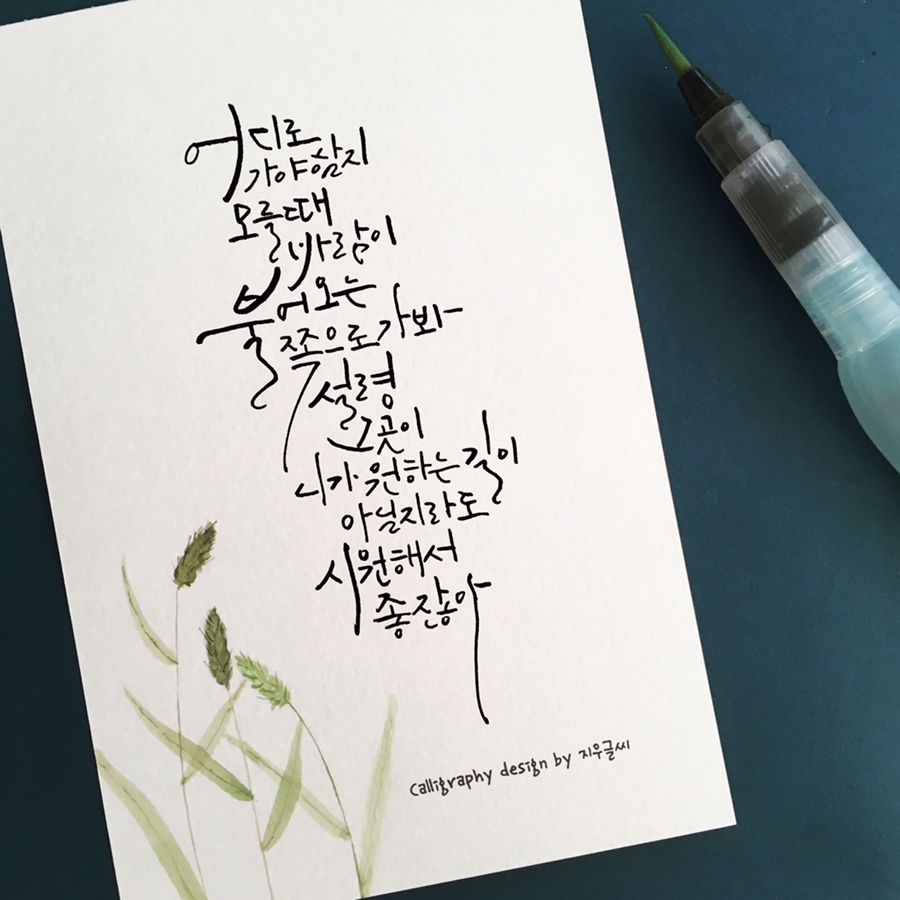 어디로
가야할지
모를때
바람이
불어오는
쪽으로가봐
설령
그곳이
니가 원하는 길이
아닐지라도
시원해서
좋잖아
calligraphy design by 지우글씨